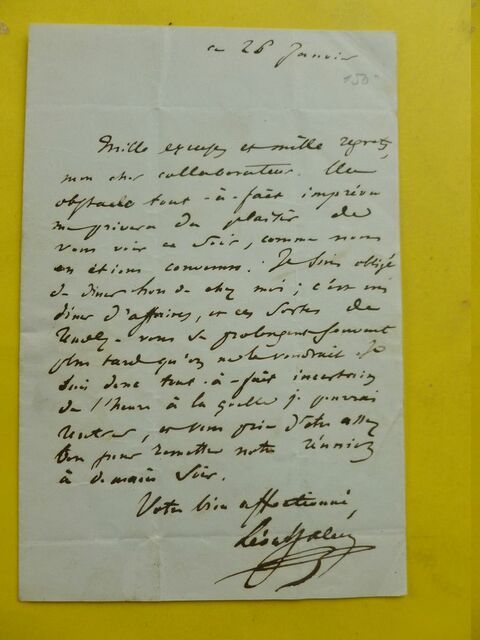 ce 26 Janvier
150
Mille excuses et mille regrets,
mon cher collaborateur. Un
obstacle tout-à-fait imprévu
me privera du plaisir de
vous voir ce soir, comme nous
en étions convenus. Je suis obligé
de diner hors de chez moi ; c'est un
diner d'affaires, et ces sortes de
rendez-vous se prolongent souvent
plus tard qu'on ne le voudrait. Je
suis donc tout-à-fait incertain
de l'heure à la quelle je pourrai
rentrer, et vous prie d'être assez
bon pour remettre notre réunion
à demain soir.
Votre bien affectionné,
Léon Halévy